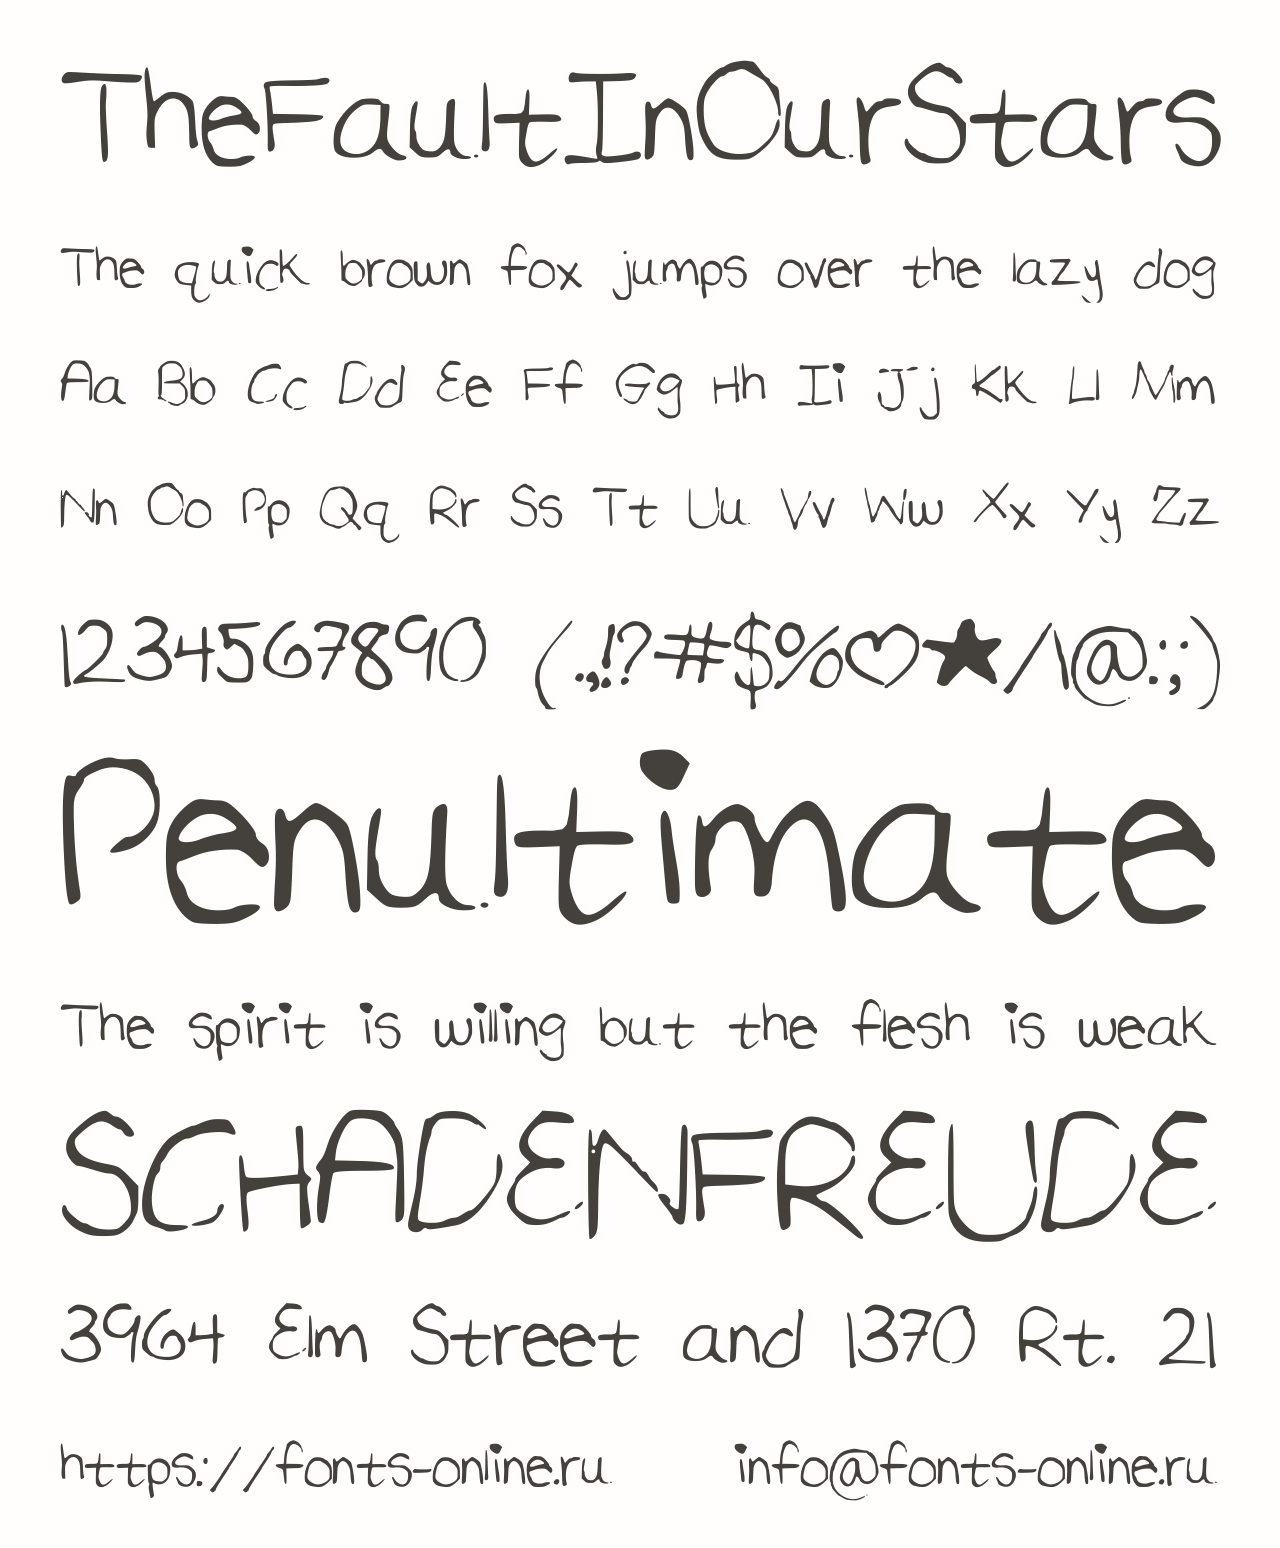 TheFaultInOurStars
The quick brown fox jumps over the lazy dog
Aa Bb Cc Dd Ee Ff Gg Hh Ii Jj Kk Ll Mm
Nn Oo Pp Qq Rr Ss Tt Uu Vv Ww Xx Yy Zz
1234567890 (.,!?#$%♡★/\@:;)
Penultimate
The spirit is willing but the flesh is weak
SCHADENFREUDE
3964 Elm Street and 1370 Rt. 21
https://fonts-online.ru info@fonts-online.ru